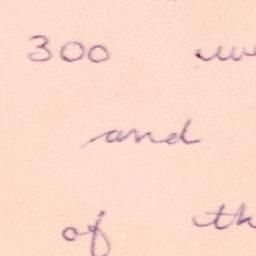 300
and
of